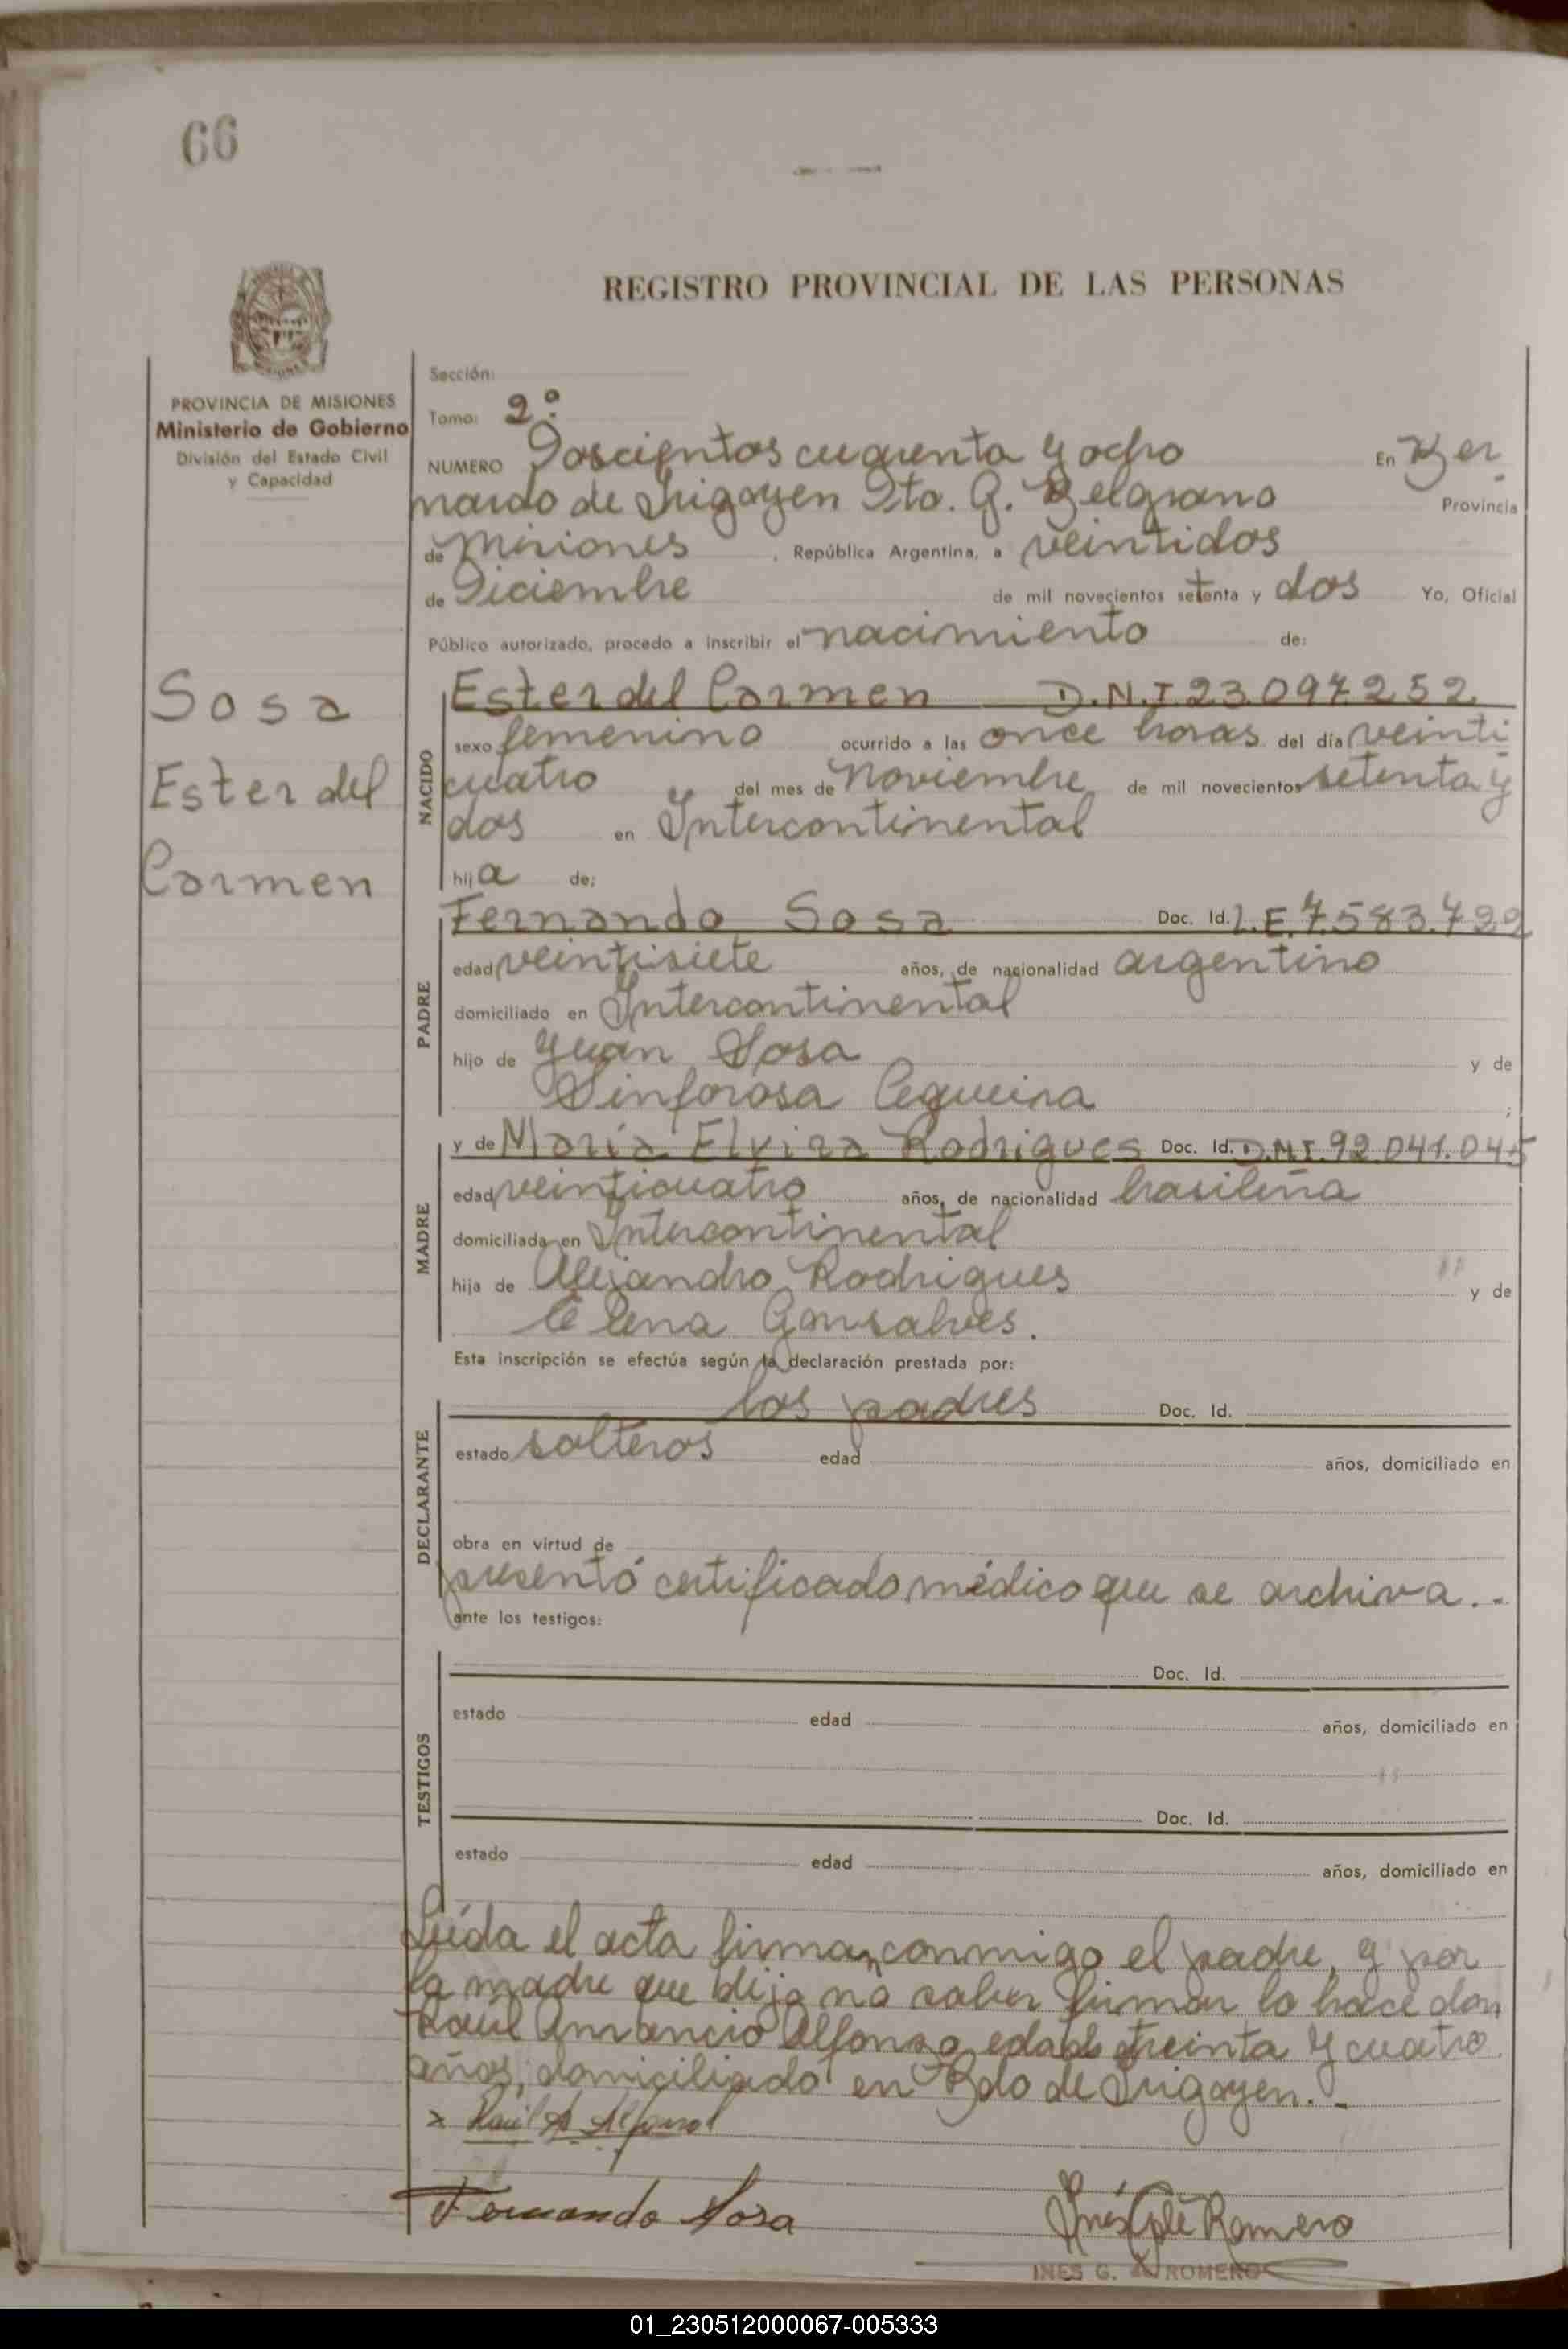 66
REGISTRO PROVINCIAL DE LAS PERSONAS
PROVINCIA DE MISIONES
Ministerio de Gobierno
División del Estado Civil
y Capacidad
Sosa
Ester del
Carmen
Sección:
Tomo: 2º
NUMERO Doscientos cuarenta y ocho En Ber
nardo de Irigoyen Dto. G. Belgrano Provincia
de Misiones, República Argentina, a veintidos
de Diciembre de mil novecientos setenta y dos Yo, Oficial
Público autorizado, procedo a inscribir el nacimiento de:
NACIDO
Ester del Carmen D.N.I 23.097.252
sexo femenino ocurrido a las once horas del día veinti
cuatro del mes de Noviembre de mil novecientos setenta y
dos en Intercontinental
hija de:
PADRE
Fernando Sosa Doc. Id. L.E. 7.583.729
edad veintisiete años, de nacionalidad argentino
domiciliado en Intercontinental
hijo de Juan Sosa y de
Sinforosa Cequeira ;
MADRE
y de María Elvira Rodrigues Doc. Id. D.N.I. 92.041.045
edad veinticuatro años, de nacionalidad brasileña
domiciliada en Intercontinental
hija de Alejandro Rodrigues y de
Elena Gonsalves.
Esta inscripción se efectúa según la declaración prestada por:
DECLARANTE
los padres Doc. Id.
estado solteros edad años, domiciliado en
obra en virtud de
presentó certificado médico que se archiva..-
ante los testigos:
TESTIGOS
Doc. Id.
estado edad años, domiciliado en
Doc. Id.
estado edad años, domiciliado en
Leída el acta firman conmigo el padre, y por
la madre que dijo no saber firmar lo hace don
Raúl Amancio Alfonzo, edad treinta y cuatro
años, domiciliado en Bdo de Irigoyen.-
x Raúl A Alfonzo
Fernando Sosa
Inés Romero
INES G. ROMERO
01_230512000067-005333